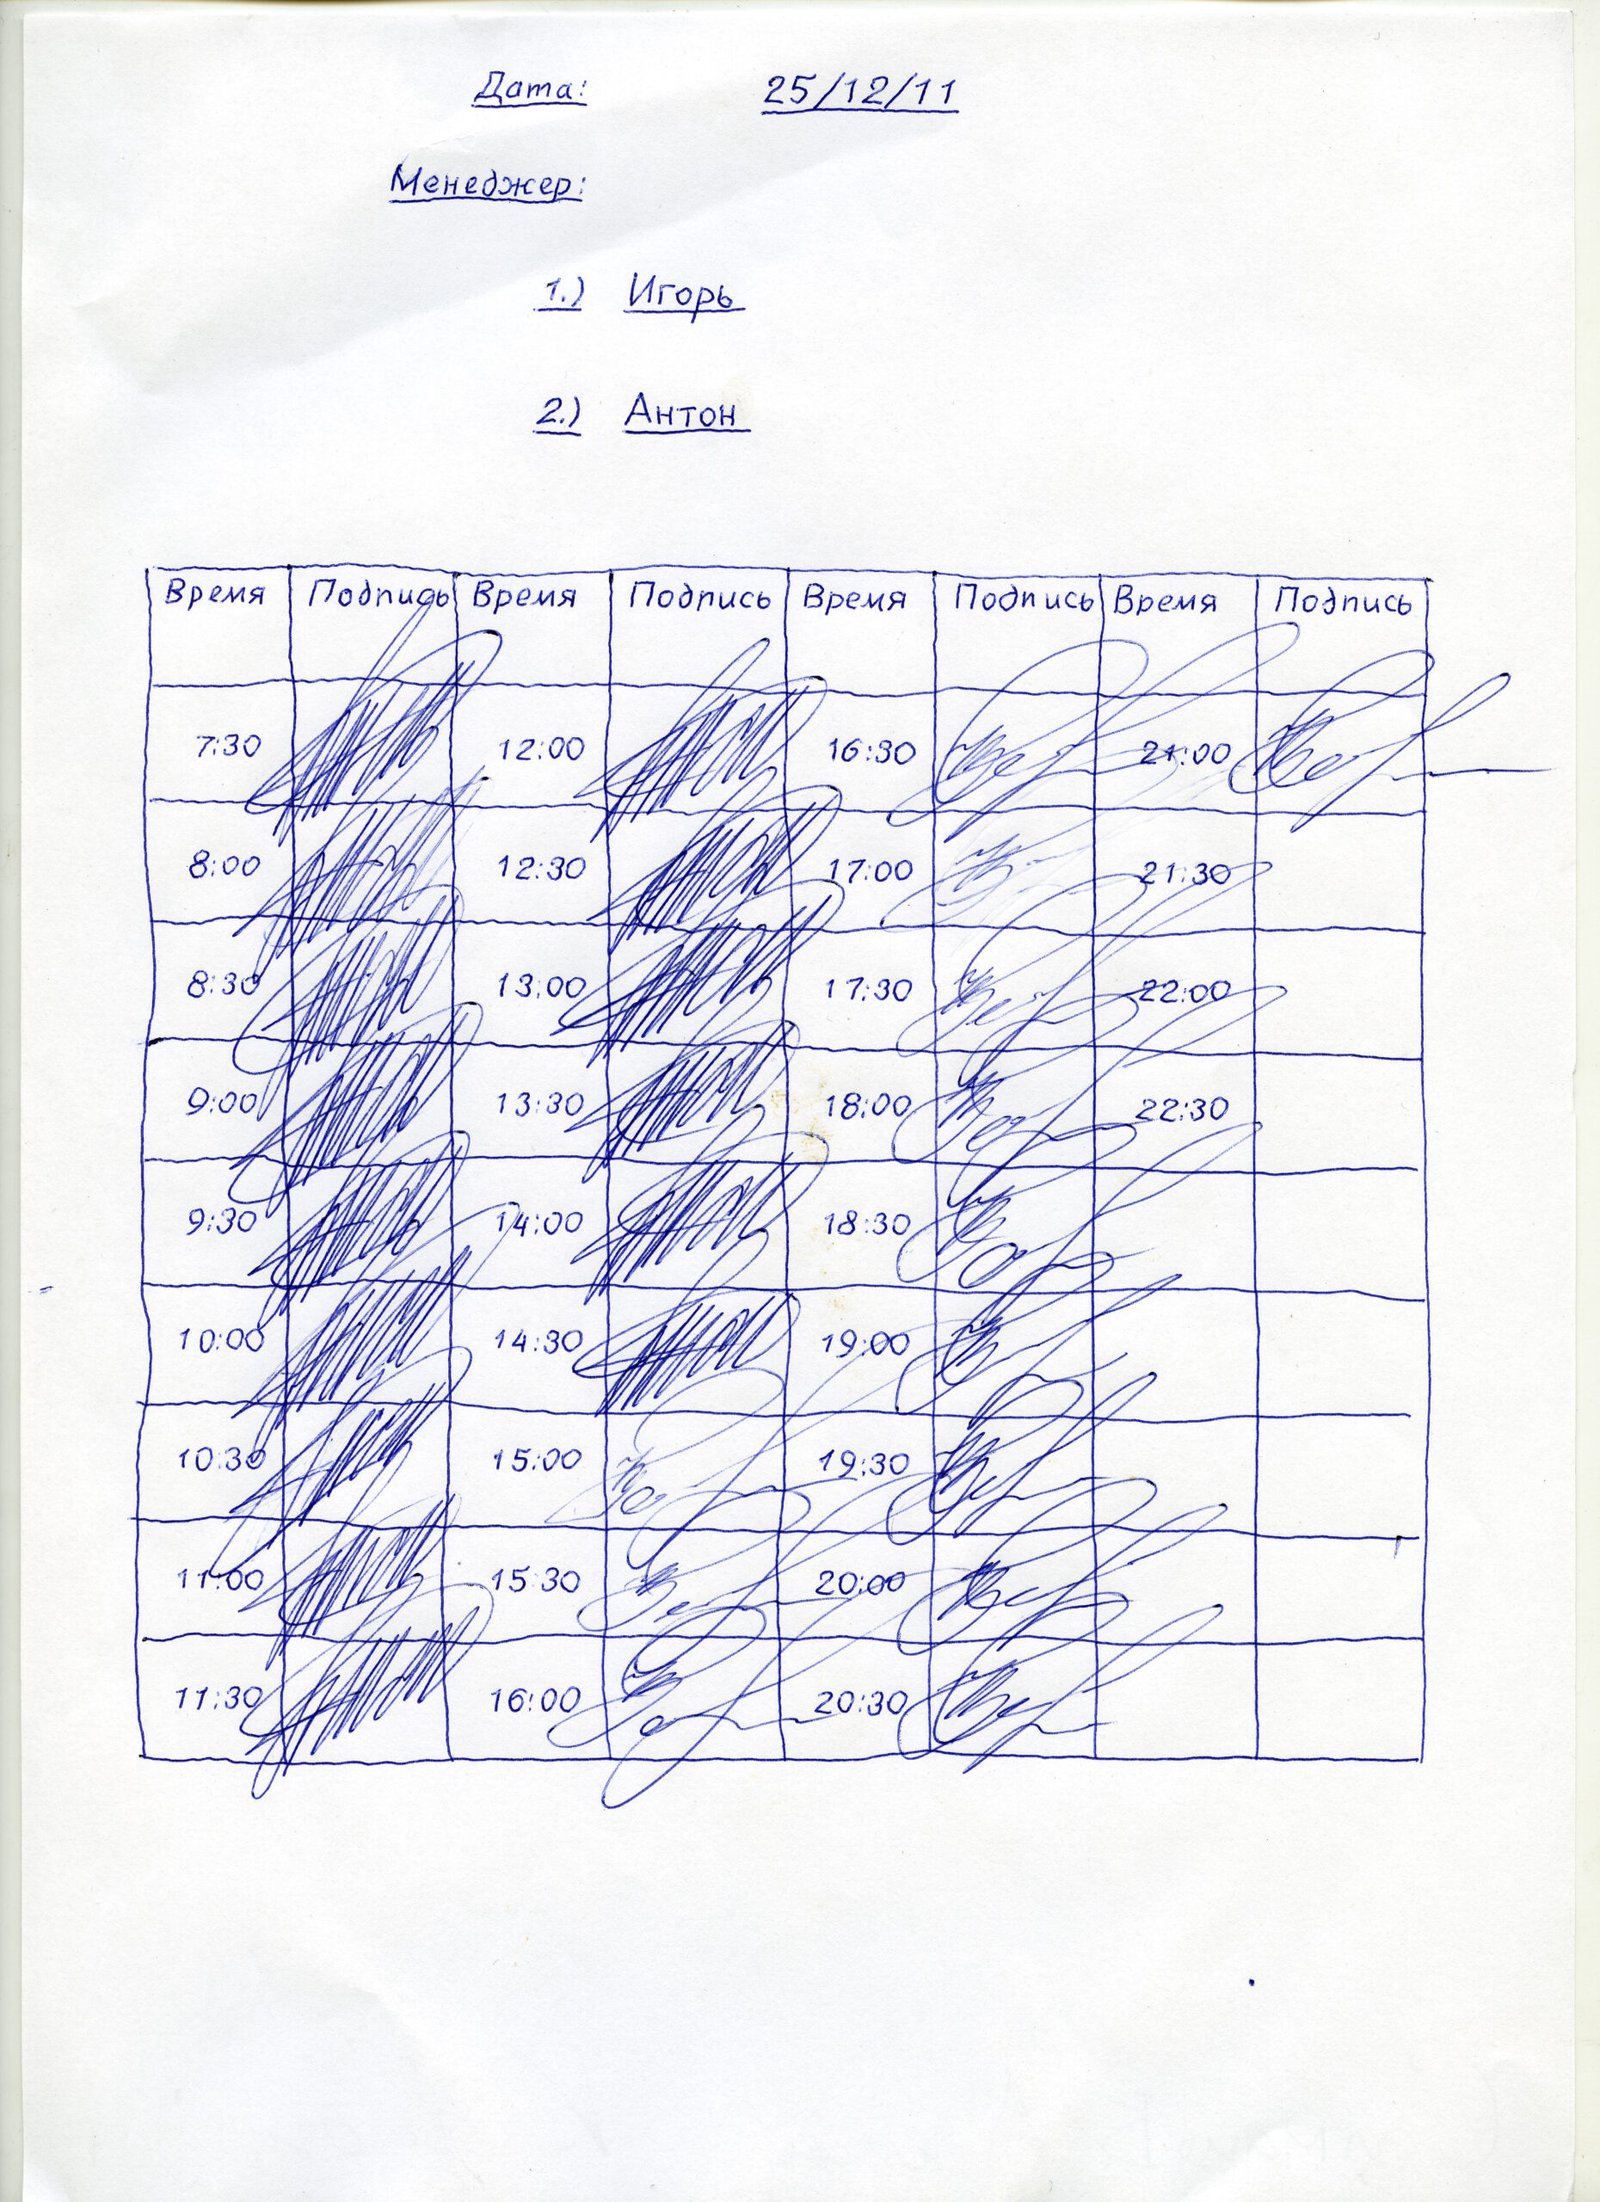 Дата: 25/12/11
Менеджер:
1.) Игорь
2.) Антон
Время Подпись Время Подпись Время Подпись Время Подпись
7:30 12:00 16:30 21:00
8:00 12:30 17:00 21:30
8:30 13:00 17:30 22:00
9:00 13:30 18:00 22:30
9:30 14:00 18:30
10:00 14:30 19:00
10:30 15:00 19:30
11:00 15:30 20:00
11:30 16:00 20:30